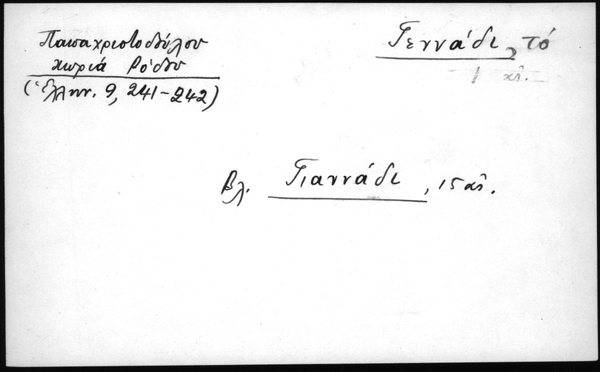 Παπαχριστοδούλου
χωριά Ρόδου
(Ἑλλην. 9, 241-242)
Γεννάδι, τό
1 κἑ.
Βλ. Γιαννάδι, 15 κἑ.